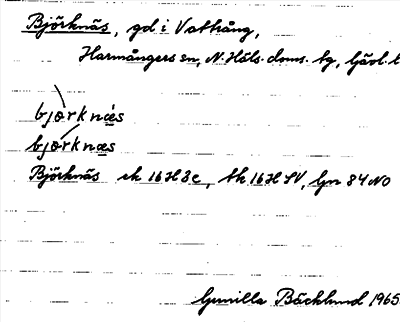 Björknäs, gd i Vattrång,
Harmångers sn, N. Häls. doms. tg, Gävl. l
bjørknæs
bjørknæs
Björknäs ek 16H3c, tk 16H SV, Gn 84 NO
Gunilla Bäcklund 1965